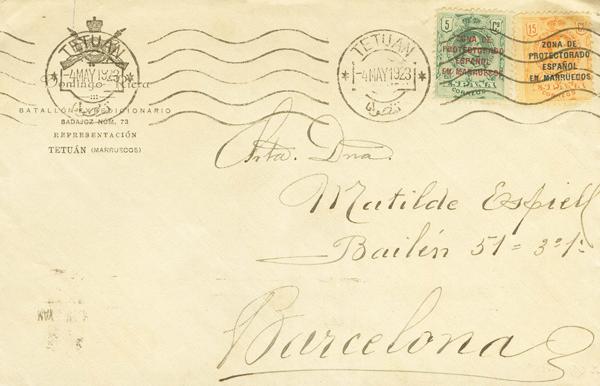 TETUAN
-4MAY1923
Domingo Riera
BATALLÓN EXPEDICIONARIO
BADAJOZ NÚM. 73
REPRESENTACIÓN
TETUÁN (MARRUECOS)
TETUAN
-4MAY1923
تطوان
5 Cs
ZONA DE
PROTECTORADO
ESPAÑOL
EN MARRUECOS
CORREOS
15 Cs
ZONA DE
PROTECTORADO
ESPAÑOL
EN MARRUECOS
CORREOS
Srta. Dna.
Matilde Espiell
Bailén 51 = 3º 1ª
Barcelona